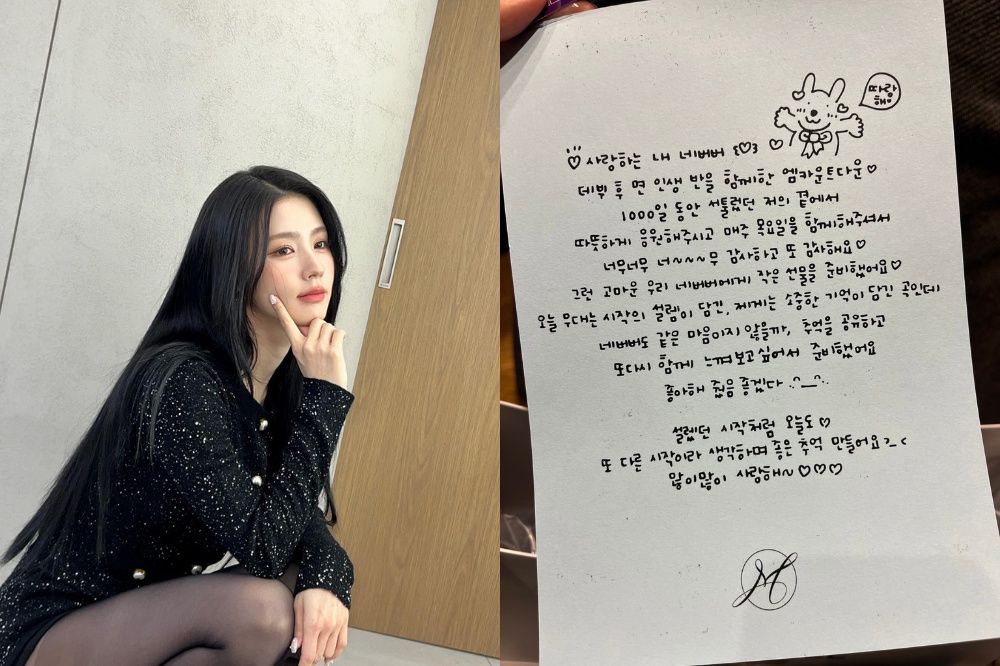 따랑
해!
♡ 사랑하는 내 네버버 ξ♡3
데뷔 후 면 인생 반을 함께한 엠카운트다운♡
1000일 동안 서툴렀던 저의 곁에서
따뜻하게 응원해주시고 매주 목요일을 함께해주셔서
너무너무 너~~~~무 감사하고 또 감사해요♡
그런 고마운 우리 네버버에게 작은 선물을 준비했어요♡
오늘 무대는 시작의 설렘이 담긴, 제게는 소중한 기억이 담긴 곡인데
네버버도 같은 마음이지 않을까, 추억을 공유하고
또다시 함께 느껴보고싶어서 준비했어요
좋아해 줬음 좋겠다 .^__^.
설렜던 시작처럼 오늘도♡
또 다른 시작이라 생각하며 좋은 추억 만들어요>_<
많이많이 사랑해~♡♡♡
M